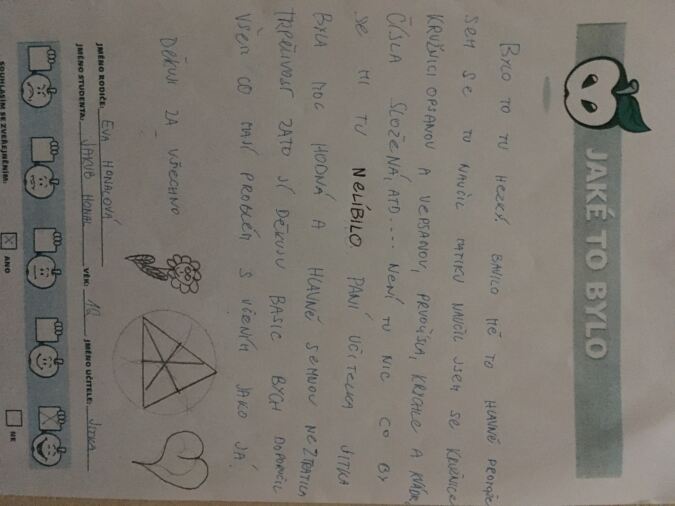 JAKÉ TO BYLO
BYLO TO TU HEZKÝ. BAVILO MĚ TO HLAVNĚ PROTOŽE
SEM SE TU NAUČIL MATIKU NAUČIL JSEM SE KRUŽNICE
KRUŽNICI OPSANOU A VEPSANOU, PRVOČÍSLA, KRYCHLE A KVÁDR,
ČÍSLA SLOŽENÁ, ATD.... NENÍ TU NIC CO BY
SE MI TU NELÍBILO. PANÍ UČITELKA JITKA
BYLA MOC HODNÁ A HLAVNĚ SEMNOU NEZTRATILA
TRPĚLIVOST ZATO JÍ DĚKUJU BASIC BYCH DOPORUČIL
VŠEM CO MAJÍ PROBLÉM S UČENÍM JAKO JÁ.
DĚKUJI ZA VŠECHNO
JMÉNO RODIČE: EVA HONALOVÁ
JMÉNO STUDENTA: JAKUB HONAL VĚK: JMÉNO UČITELE: JITKA
SOUHLASÍM SE ZVEŘEJNĚNÍM: X ANO NE